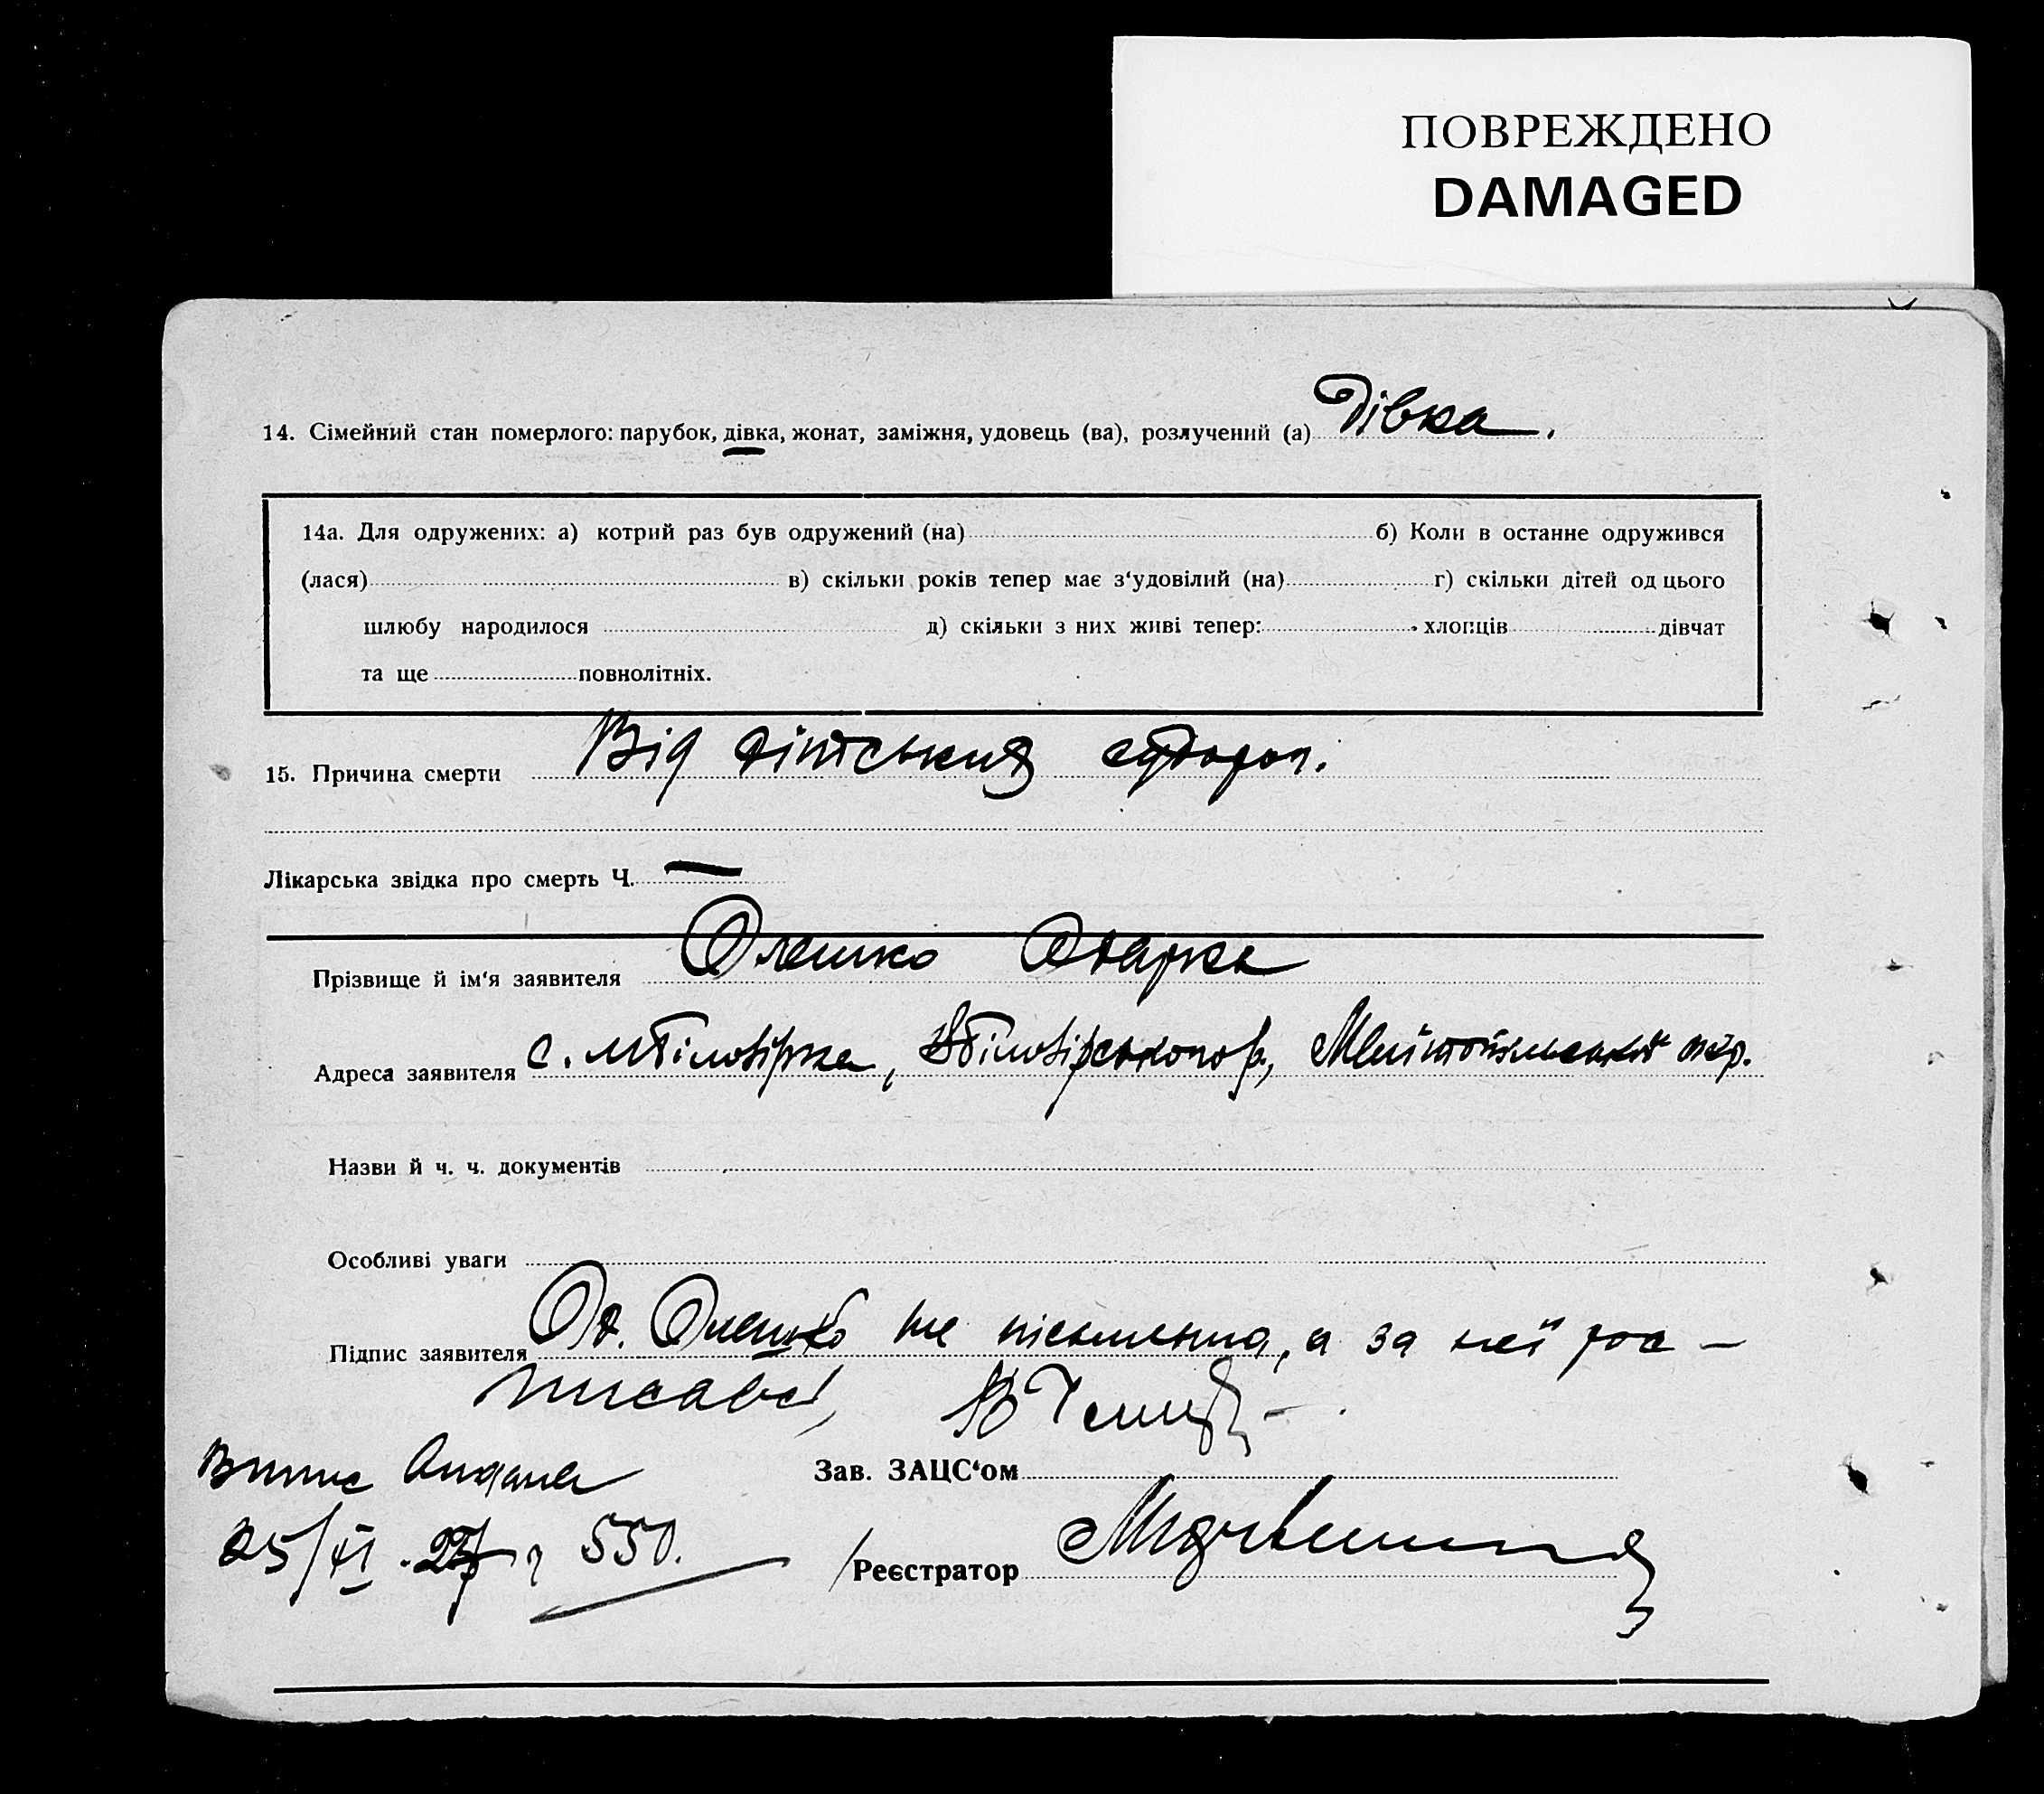 ПОВРЕЖДЕНО
DAMAGED
14. Сімейний стан померлого: парубок, дівка, жонат, заміжня, удовець (ва), розлучений (а) Дівка.
14а. Для одружених: а) котрий раз був одружений (на) б) Коли в останнє одружився
(лася) в) скільки років тепер має з'удовілий (на) г) скільки дітей од цього
шлюбу народилося д) скільки з них живі тепер: хлопців дівчат
та ще повнолітніх.
15. Причина смерти Від дітських судорог.
Лікарська звідка про смерть Ч. —
Прізвище й ім'я заявителя Олешко Одарка
Адреса заявителя с. мБілозірка, вБілозірського р., Мелітопільської окр.
Назви й ч. ч. документів
Особливі уваги
Підпис заявителя Од. Олешко не письменна, а за неї рос–
писавсь
Випис видана
Зав. ЗАЦС'ом
25/XI 27 р 550.
Реєстратор